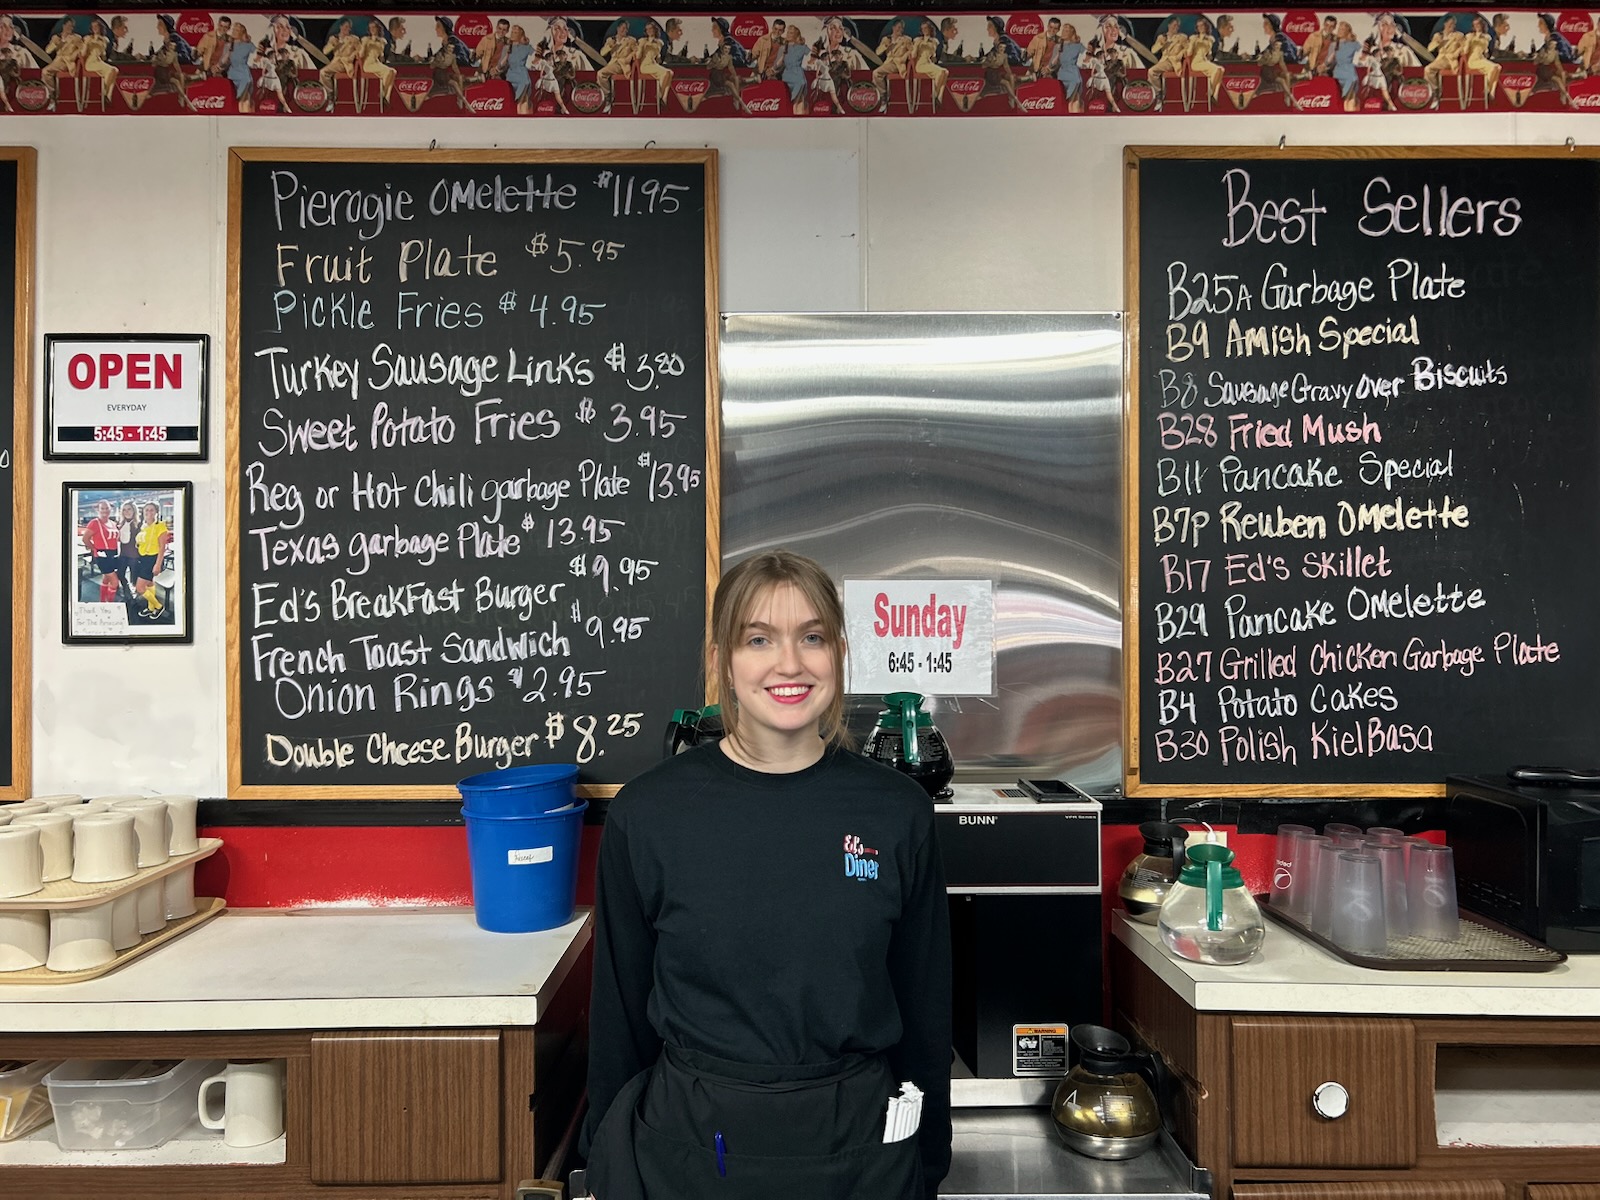 Pierogie Omelette $11.95
Fruit Plate $5.95
Pickle Fries $4.95
Turkey Sausage Links $3.80
Sweet Potato Fries $3.95
Reg or Hot Chili garbage Plate $13.95
Texas garbage Plate $13.95
Ed's Breakfast Burger $9.95
French Toast Sandwich $9.95
Onion Rings $2.95
Double Cheese Burger $8.25
OPEN
EVERYDAY
5:45 - 1:45
Thank You
For The Amazing
Sunday
6:45 - 1:45
Best Sellers
B25A Garbage Plate
B9 Amish Special
B8 Sausage Gravy Over Biscuits
B28 Fried Mush
B11 Pancake Special
B7P Reuben Omelette
B17 Ed's Skillet
B29 Pancake Omelette
B27 Grilled Chicken Garbage Plate
B4 Potato Cakes
B30 Polish KielBasa
Coca-Cola
BUNN
VPR Series
Ed's
Diner
WARNING